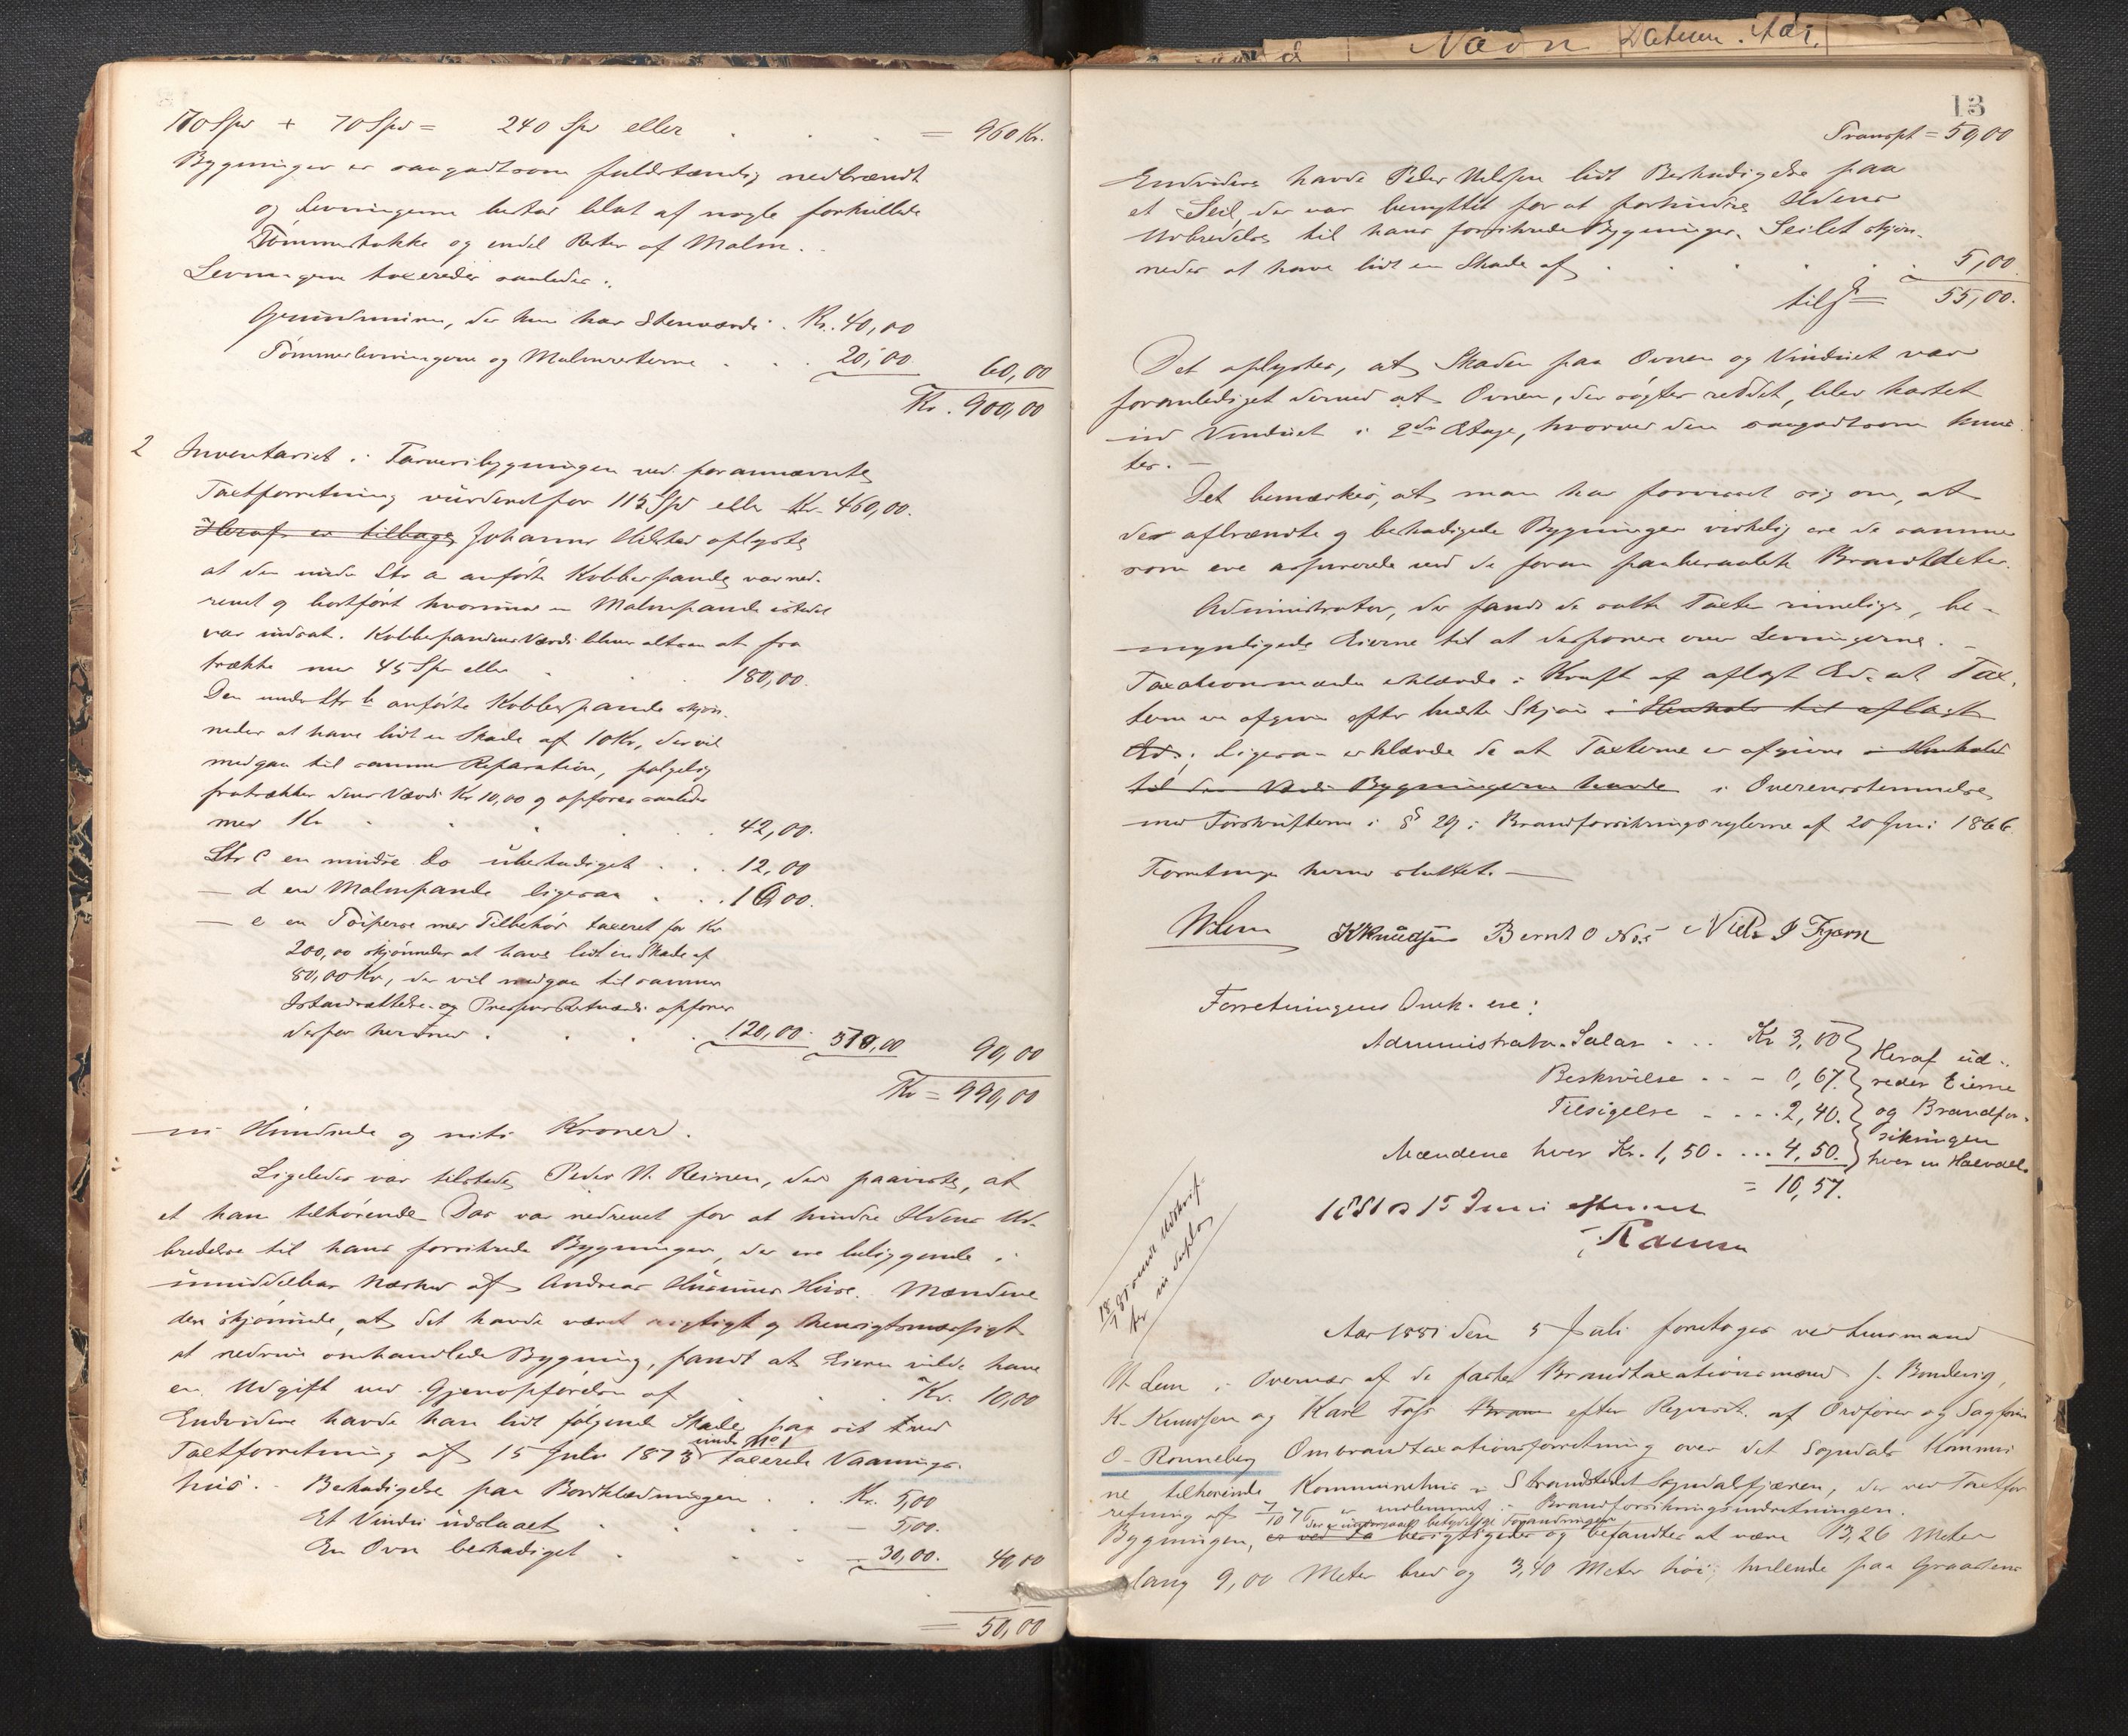 170 Spd + 70 Spd = 240 Spd eller . . . = 960 Kr.
Bygningen er saagodtsom fuldstændig nedbrændt
og Levningerne bestaar blot af nogle forkullede
Tømmerstokke og endel Rester af Malm.
Levningerne taxeredes saaledes:
Grundmuren, der kun har Stenværdi . Kr. 40,00
Tømmerlevningerne og Malmresterne . . . 20,00 60,00
Kr. 900,00
2 Inventariet i Farveribygningen ved forannævnte
Taxtforretning vurderet for 115 Spd eller Kr. 460,00.
Heraf er tilbage Johannes oplyste
at den under Litr a anførte Kobberpande var ned-
revet og bortført hvorimod en Malmpande istedet
var indsat. Kobberpandens Værdi bliver altsaa at fra
trække med 45 Spd eller . . . 180,00.
Den under Litr b anførte Kobberpande skjøn-
nedes at have lidt en Skade af 10 Kr, der vil
medgaa til sammes Reparation, følgelig
fratrækkes dens Værdi Kr 10,00 og opføres saaledes
med Kr . . . . . 42,00.
Litr c en mindre do ubeskadiget . . . 12,00
— d en Malmpande ligesaa . . . 16,00.
— e en Tøipresse med Tilbehør taxeret for Kr
200,00 skjønnedes at have lidt en Skade af
80,00 Kr, der vil medgaa til sammes
Istandsættelse og Pressens Restværdi opføres
derfor herved med . . . . 120,00. 370,00 90,00
Kr = 990,00
ni Hundrede og niti Kroner.
Ligeledes var tilstede Peder N. Reinen, der paaviste, at
et ham tilhørende Das var nedrevet for at hindre Ildens Ud-
bredelse til hans forsikrede Bygninger, der ere beliggende i
umiddelbar Nærhed af Andreas Huse. Mændene
der skjønnede, at det havde været nigtigt og hensigtsmæssigt
at nedrive omhandlede Bygning, fandt at Eieren vilde have
en Udgift ved Gjenopførelsen af . . . Kr. 10,00
Endvidere havde han lidt følgende Skade paa sit ved
Taxtforretning af 15 Juli 1873 under No 1 taxerede Vaanings-
hus. - Beskadigelse paa Bordklædningen . . Kr. 5,00
Et Vindu udslaaet . . . — 5,00.
En Ovn beskadiget . . . — 30,00. 40,00
= 50,00
Nævn Datum. Aar.
13
Transpt = 50,00
Endvidere havde Peder Nielsen lidt Beskadigelse paa
et Seil, der var benyttet for at forhindre Ildens
Udbredelse til hans forsikrede Bygninger. Seilet skjøn-
nedes at have lidt en Skade af . . . . . 5,00
tils = 55,00.
Det oplystes, at Skaden paa Ovnen og Vinduet var
foranlediget derved at Ovnen, der søgtes reddet, blev kastet
ud Vinduet i 2den Etage, hvorved den saagodtsom knus-
tes. —
Det bemærkes, at man har forvisset sig om, at
de afbrændte og beskadigede Bygninger virkelig ere de samme
som ere assurerede ved de foran paaberaabte Brandtaxter.
Administrator, der fandt de satte Taxter rimelige, be-
myndigede Eierne til at disponere over Levningerne. —
Taxationsmændene erklærede i Kraft af aflagt Ed at Tax-
terne er afgivne efter bedste Skjøn i Henhold til aflagt
Ed; ligesaa erklærede de at Taxterne er afgivne i Henhold
til den Værdi Bygningerne havde i Overensstemmelse
med Forskrifterne i § 29 i Brandforsikringsreglerne af 20 Juni 1866.
Forretningen hermed sluttet. —
N. Lem K Knudsen Bernt O Nes Niels J Fjærn
Forretningens Omk. ere:
Administrators Salær . . . Kr 3,00
Beskrivelse . . - 0,67.
Tilsigelse . . . . 2,40.
Mændene hver Kr. 1,50 . . . . 4,50.
= 10,57.
Heraf ud-
reder Eierne
og Brandfor-
sikringen
hver en Halvdel.
1881 15 Juni
18/7 81 Udskrif-
ter in duplo
Aar 1881 den 5 Juli foretoges ved Lensmand
N. Lem i Overvær af de faste Brandtaxationsmænd J. Bondevig,
K. Knudsen og Karl Foss efter Reqvisit. af Ordfører og Sagfører
O. Ronneberg Ombrandtaxationsforretning over det Sogndals Kommu
ne tilhørende Kommunehus i Strandstedet Sogndalsfjæren, der ved Taxtfor
retning af 7/10 75 er indlemmet i Brandforsikringsindretningen.
der er undergaaet betydelige Forandringer
Bygningen, er ved besigtigedes og befandtes at være 13,26 Meter
lang 9,00 Meter bred og 3,40 Meter høi; hvilende paa Graastens